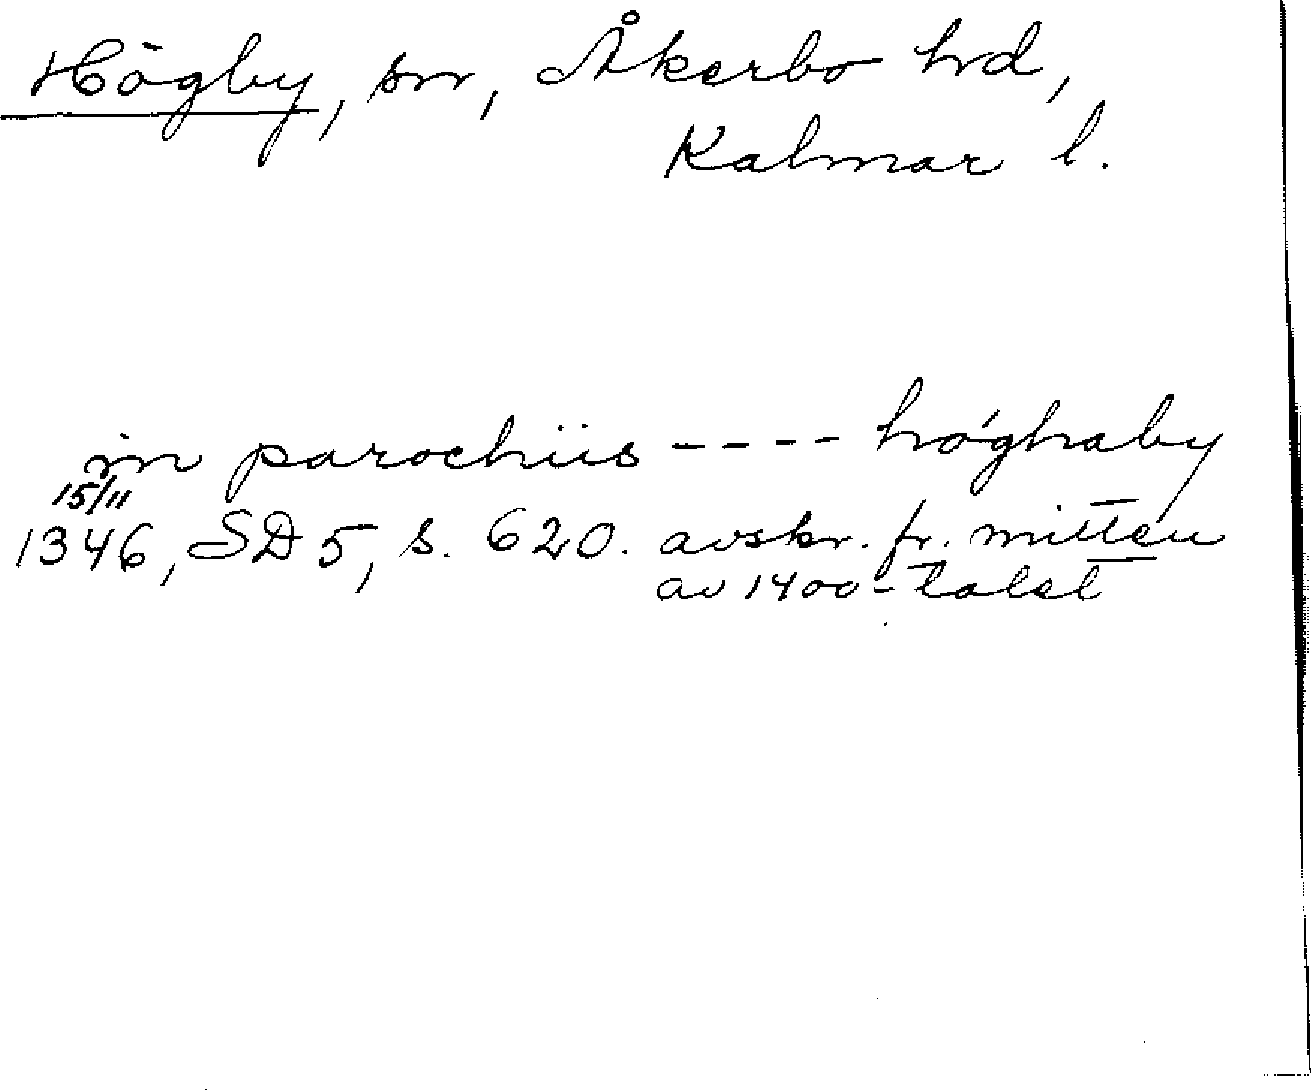 Högby, sn, Åkerbo hd,
Kalmar l.
in parochiis ---- hóghaby
15/11
1346, SD 5, s. 620. avskr. fr. mitten
av 1400-talet